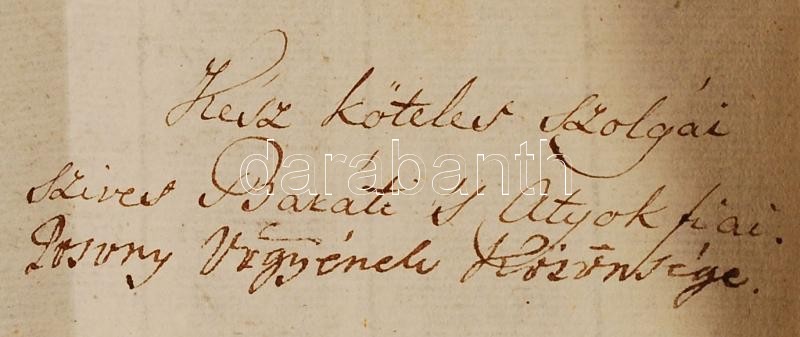 Kész köteles szolgái
szives Baráti 's Atyok fiai.
Posony Vrgyének Közönsége.
darabanth